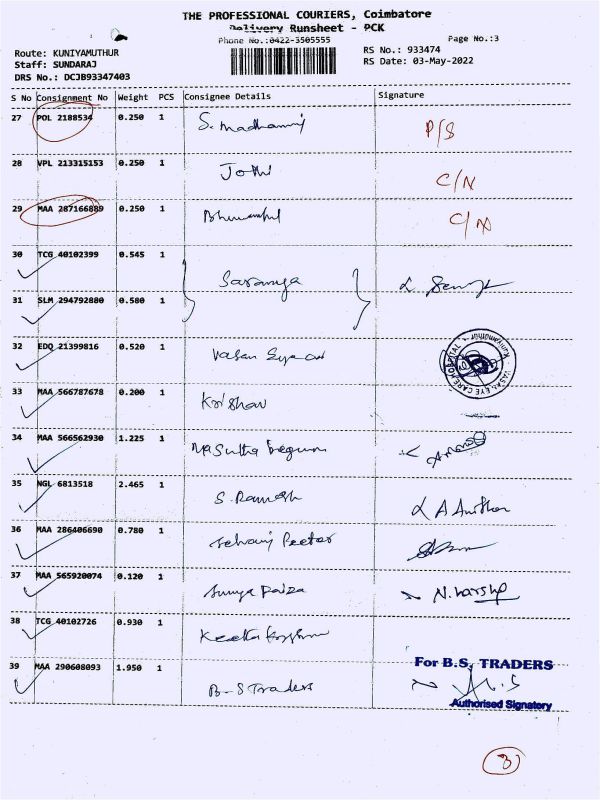 THE PROFESSIONAL COURIERS, Coimbatore
Delivery Runsheet - PCK
Phone No.:0422-3505555
Page No.:3
Route: KUNIYAMUTHUR
RS No.: 933474
Staff: SUNDARAJ
RS Date: 03-May-2022
DRS No.: DCJB93347403
S No Consignment No Weight PCS Consignee Details Signature
27 POL 2188534 0.250 1 P/S
28 VPL 213315153 0.250 1 Jothi C/N
29 MAA 287166889 0.250 1 C/N
30 TCG 40102399 0.545 1 Saranya
31 SLM 294792880 0.580 1
32 EDQ 21399816 0.520 1 Vasan
VASAN EYE CARE HOSPITAL
Kuniyamuthur
33 MAA 566787678 0.200 1 Krishan
34 MAA 566562930 1.225 1 begum
35 NGL 6813518 2.465 1 S. Ramesh
36 MAA 286406690 0.780 1
37 MAA 565920074 0.120 1
38 TCG 40102726 0.930 1
39 MAA 290608093 1.950 1 B-S Traders
For B.S. TRADERS
Authorised Signatory
3